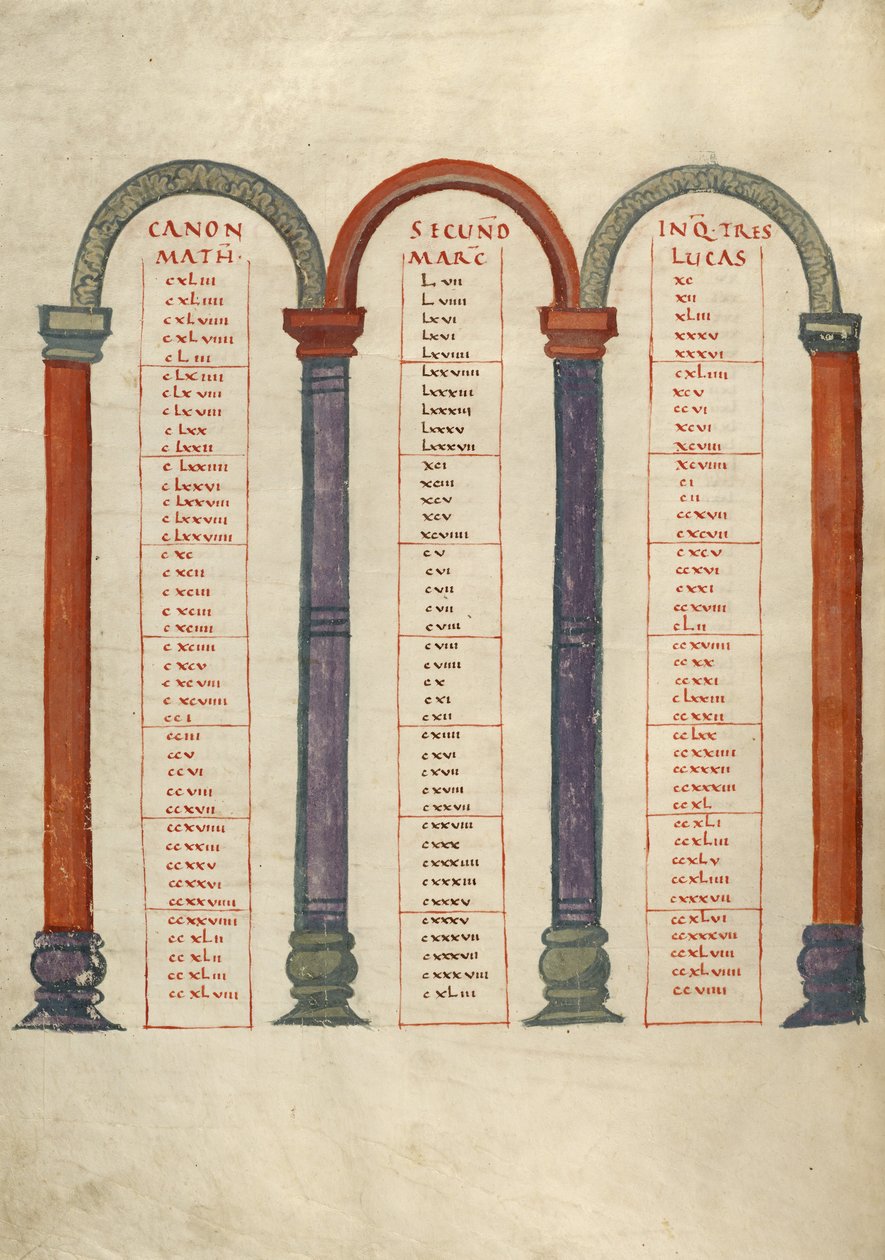 CANON SECUN̄D INQ̄·TRES
MATH̄· MARC̄ LUCAS
cxLiii Lvii xc
cxLiiii Lviiii xii
cxLviiii Lxvi xLiii
cxLviiii Lxvi xxxv
cLiii Lxviiii xxxvi
cLxiiii Lxxviiii cxLiiii
cLxviii Lxxxiii xcv
cLxviii Lxxxiii ccvi
cLxx Lxxxv xcvi
cLxxii Lxxxvii xcviii
cLxxiiii xci xcviiii
cLxxvi xciii ci
cLxxviii xcv cii
cLxxviii xcv ccxvii
cLxxviiii xcviiii cxcvii
cxc cv cxcv
cxcii cvi ccxvi
cxciii cvii cxxi
cxciii cvii ccxviii
cxciiii cviii cLii
cxciiii cviii ccxviiii
cxcv cviiii ccxx
cxcviii cx ccxxi
cxcviiii cxi cLxxiii
cci cxii ccxxii
cciii cxiiii ccLxx
ccv cxvi ccxxiiii
ccvi cxvii ccxxxii
ccviii cxviii ccxxxiii
ccxvii cxxvii ccxL
ccxviiii cxxviii ccxLi
ccxxiii cxxx ccxLiii
ccxxv cxxxiiii ccxLv
ccxxvi cxxxiii ccxLiiii
ccxxviiii cxxxv cxxxvii
ccxxviiii cxxxv ccxLvi
ccxLii cxxxvii ccxxxvii
ccxLii cxxxvii ccxLviii
ccxLiii cxxxviii ccxLviiii
ccxLviii cxLiii ccviii